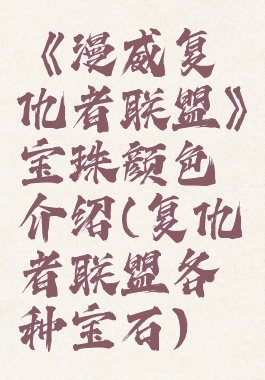 《漫威复
仇者联盟》
宝珠颜色
介绍(复仇
者联盟各
种宝石)